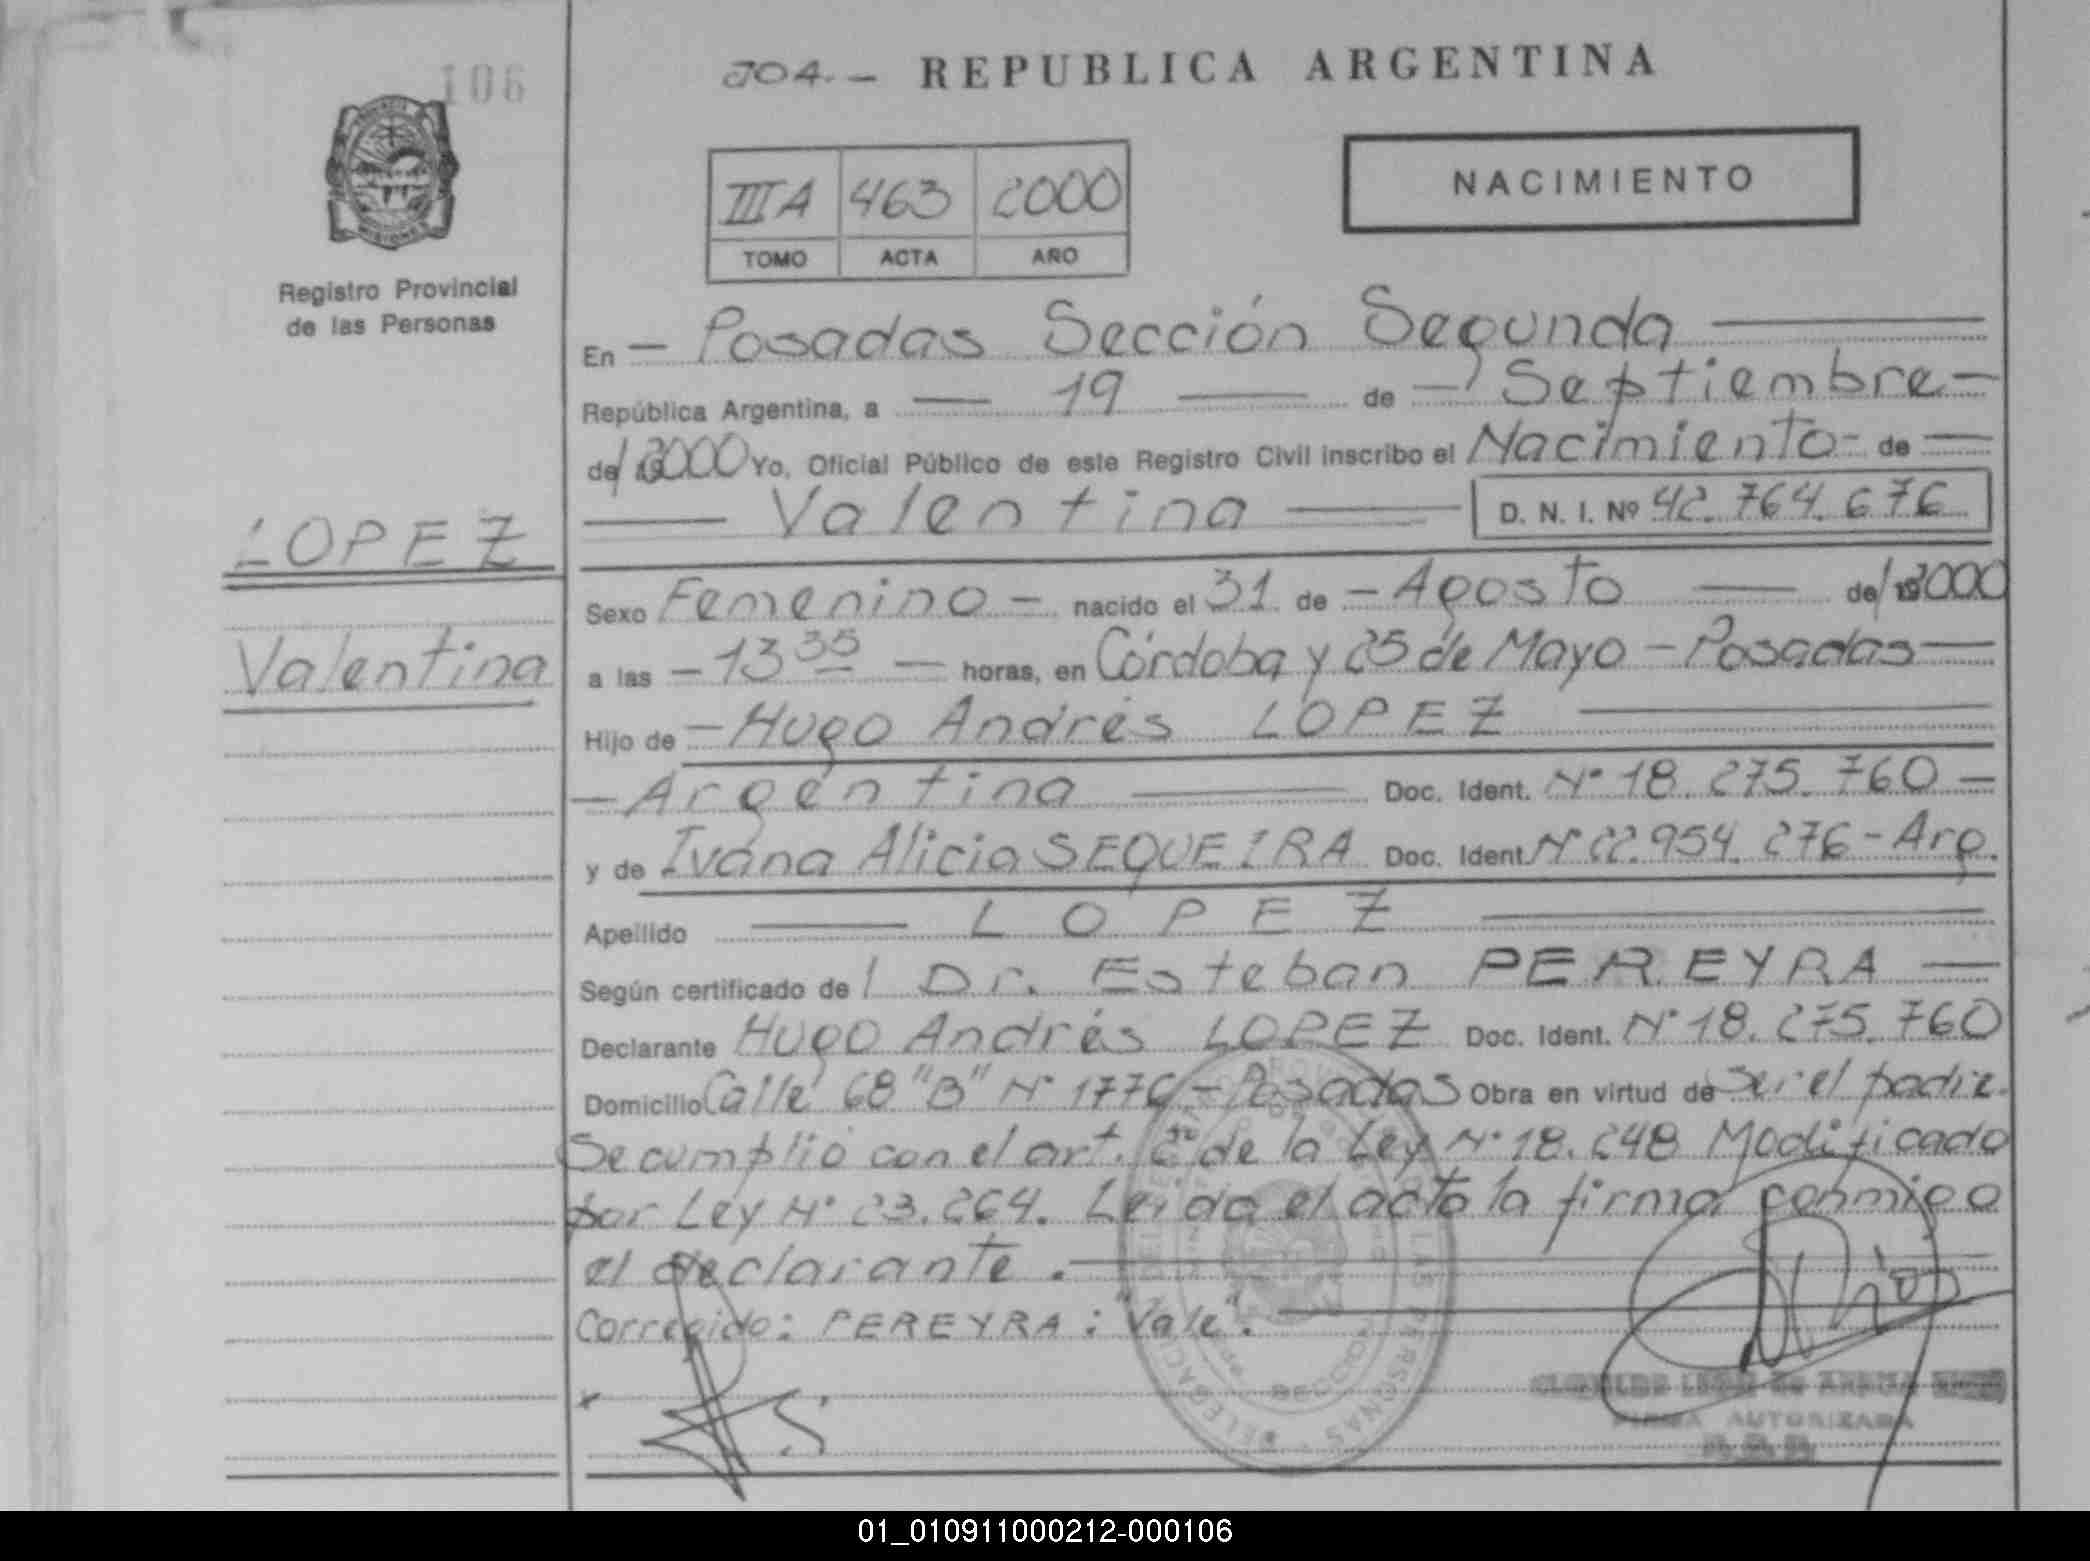 106
204.- REPUBLICA ARGENTINA
IIIA 463 2000
TOMO ACTA AÑO
NACIMIENTO
MISIONES
Registro Provincial
de las Personas
En - Posadas Sección Segunda
República Argentina, a 19 de - Septiembre -
de/ 2000 Yo, Oficial Público de este Registro Civil inscribo el Nacimiento - de
Valentina D. N. I. Nº 42.764.676
LOPEZ
Sexo Femenino - nacido el 31 de - Agosto de/ 2000
Valentina
a las - 13 35 - horas, en Córdoba y 25 de Mayo - Posadas
Hijo de - Hugo Andrés LOPEZ
- Argentina Doc. Ident. Nº 18.275.760 -
y de Ivana Alicia SEQUEIRA Doc. Ident. Nº 22.954.276 - Arg.
Apellido LOPEZ
Según certificado de / Dr. Esteban PEREYRA
Declarante Hugo Andrés LOPEZ Doc. Ident. Nº 18.275.760
Domicilio Calle 68 "B" Nº 1776 - Posadas Obra en virtud de ser el padre.
Se cumplió con el art. 2º de la Ley Nº 18.248 Modificado
por Ley Nº 23.264. Leida el acta la firma conmigo
el declarante.
Corregido: PEREYRA: "Vale".
FIRMA AUTORIZADA
01_010911000212-000106